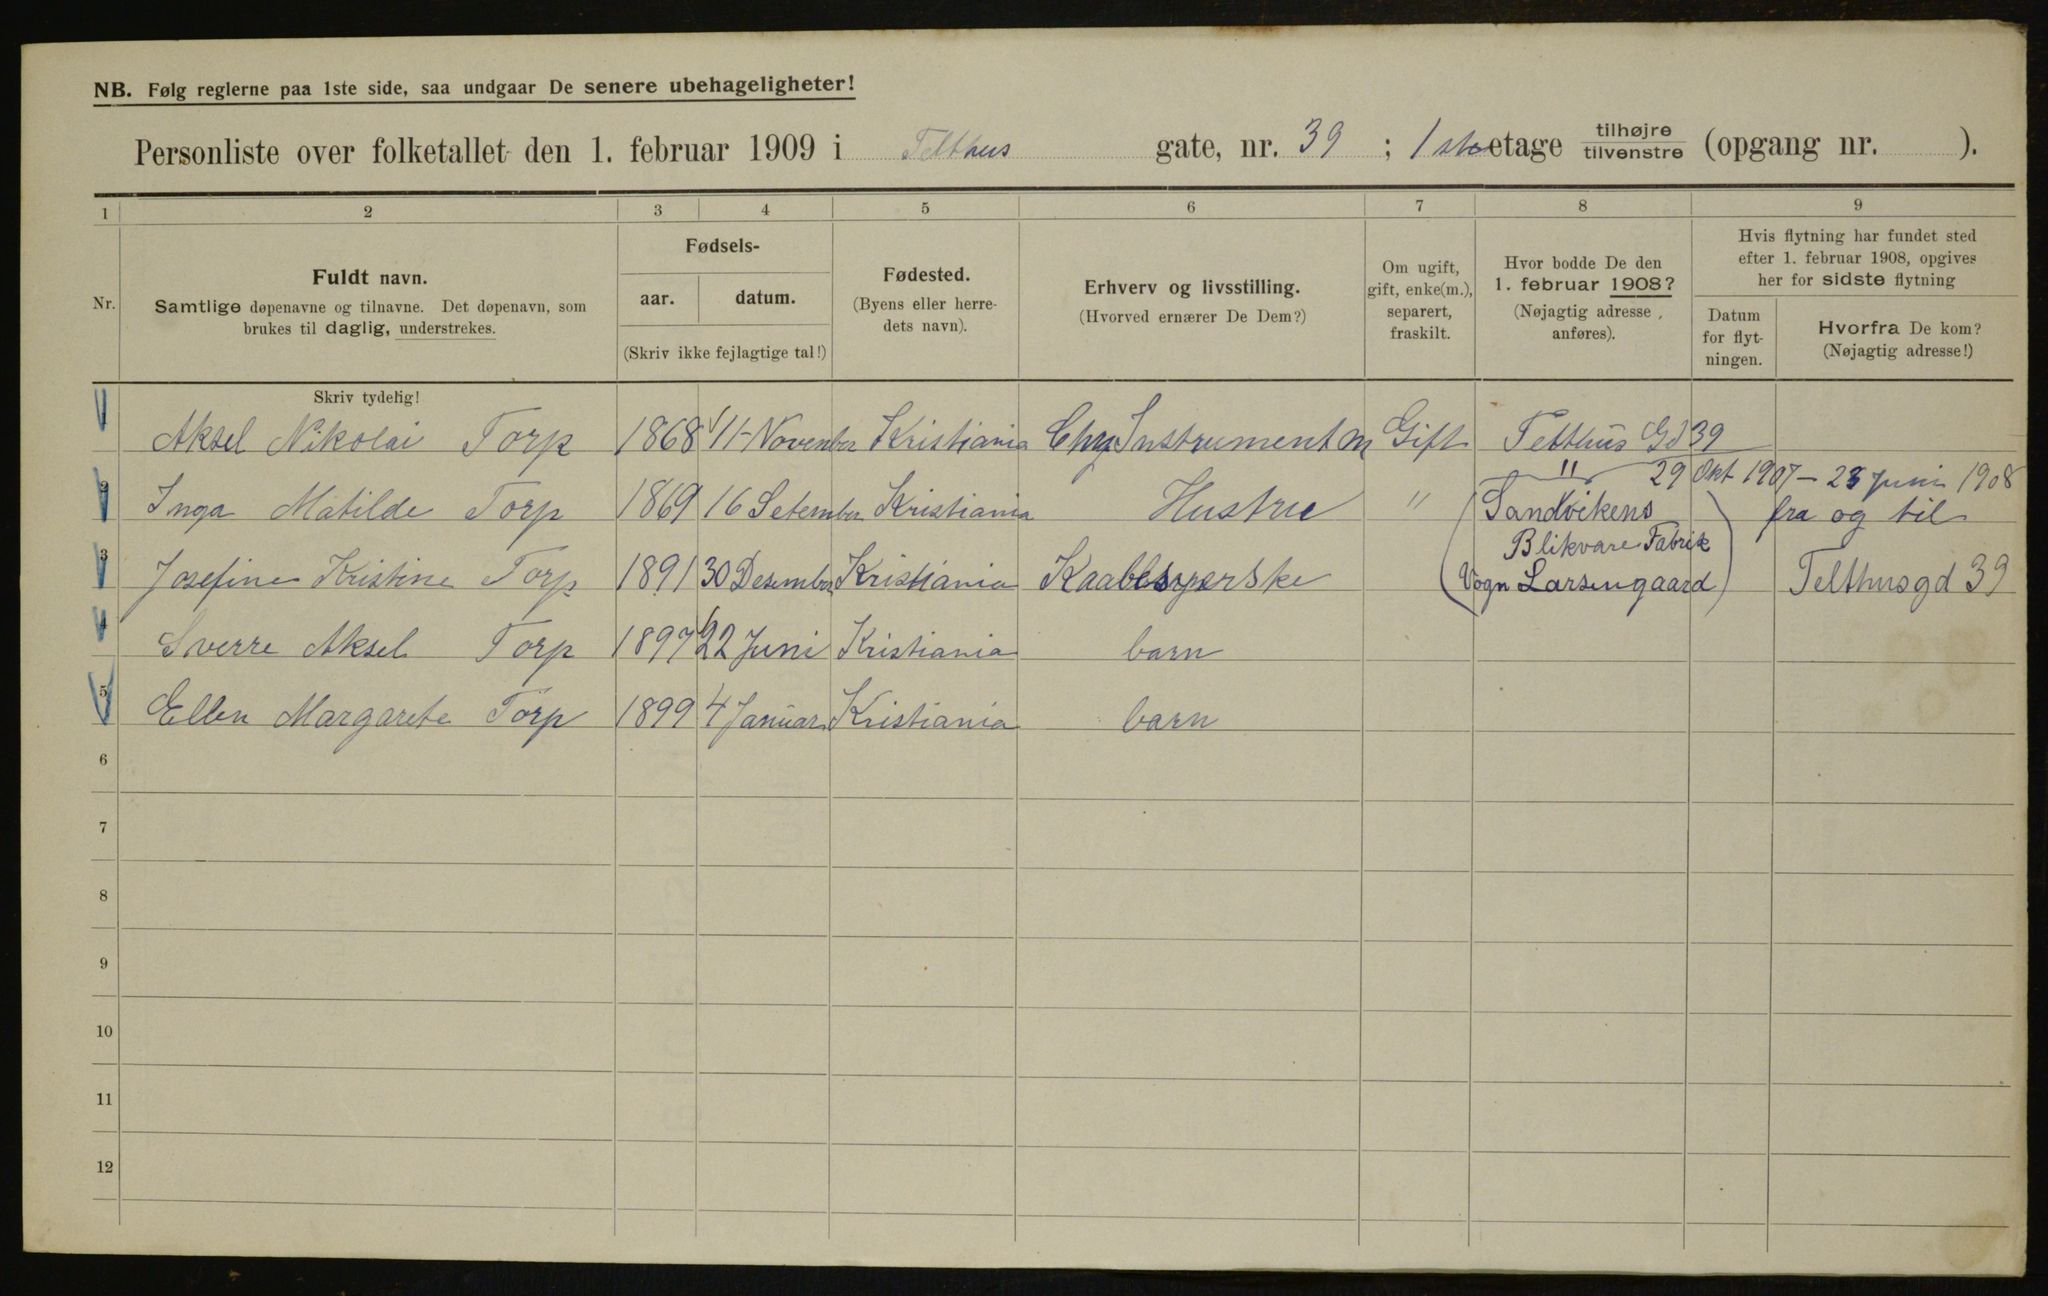 NB. Følg reglerne paa 1ste side, saa undgaar De senere ubehageligheter!
Personliste over folketallet den 1. februar 1909 i Telthus gate, nr. 39 ; 1 ste etage tilhøjre / tilvenstre (opgang nr. ).
1 2 3 4 5 6 7 8 9
Nr.
Fuldt navn.
Samtlige døpenavne og tilnavne. Det døpenavn, som
brukes til daglig, understrekes.
Fødsels-
aar. datum.
(Skriv ikke fejlagtige tal!)
Fødested.
(Byens eller herre-
dets navn).
Erhverv og livsstilling.
(Hvorved ernærer De Dem?)
Om ugift,
gift, enke(m.),
separert,
fraskilt.
Hvor bodde De den
1. februar 1908?
(Nøjagtig adresse
anføres).
Hvis flytning har fundet sted
efter 1. februar 1908, opgives
her for sidste flytning
Datum
for flyt-
ningen.
Hvorfra De kom?
(Nøjagtig adresse!)
Skriv tydelig!
1 Aksel Nikolai Torp 1868 11 November Kristiania Instrument m Gift Telthus Gd 39
" 29 Okt 1907 – 23 Juni 1908
2 Inga Matilde Torp 1869 16 Setember Kristiania Hustru " (Sandvikens fra og til
Blikvare Fabrik
3 Josefine Kristine Torp 1891 30 Desember Kristiania Vogn Larsengaard) Telthusgd 39
4 Sverre Aksel Torp 1897 22 Juni Kristiania barn
5 Ellen Margarete Torp 1899 4 Januar Kristiania barn
6
7
8
9
10
11
12